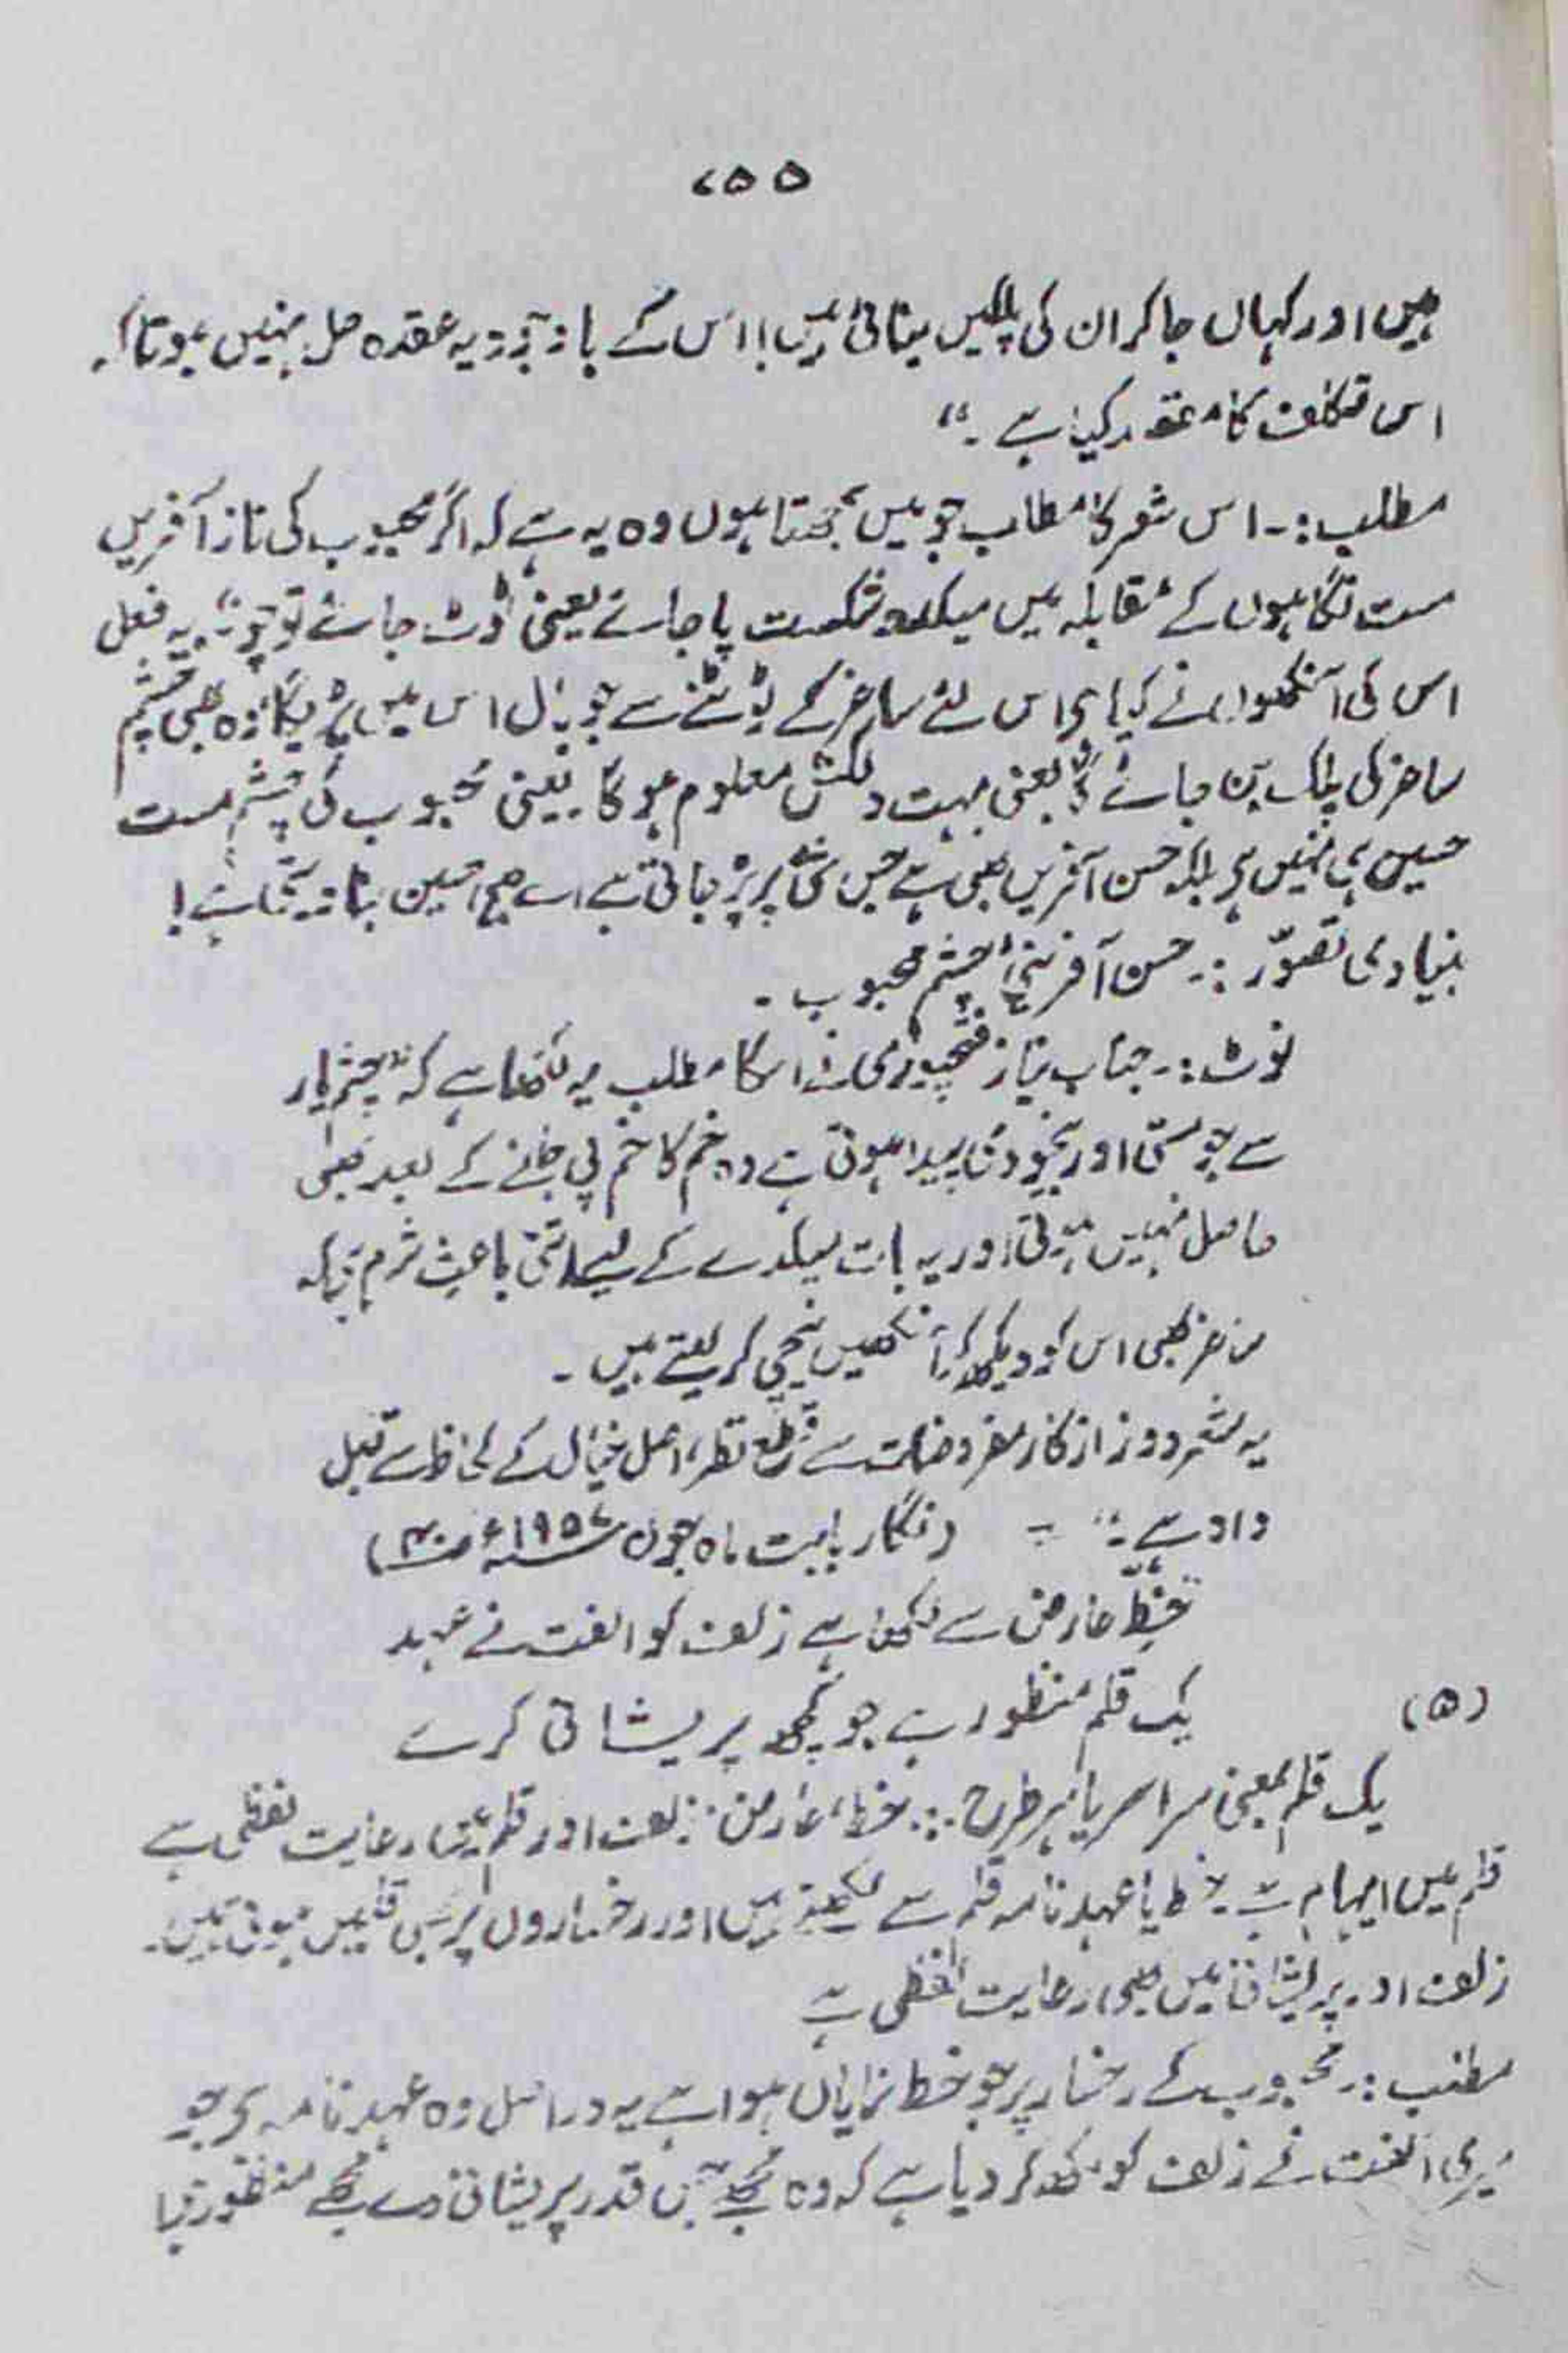 ۷۵۵
ہیں اور کہاں جا کر ان کی پلکیں بناتی ہیں! اس کے باوجود یہ عقدہ حل نہیں ہوتا کہ
اس تکلف کا مقصد کیا ہے۔"
مطلب:۔ اس شعر کا مطلب جو میں سمجھتا ہوں وہ یہ ہے کہ اگر محبوب کی ناز آفریں
مست نگاہوں کے مقابلہ میں میکدہ شکست پا جائے یعنی ٹوٹ جائے تو چونکہ یہ فعل
اس کی آنکھوں نے کیا ہے اس لئے ساغر کے ٹوٹنے سے جو بال اس میں پڑیگا وہ بھی چشم
ساغر کی پلک بن جائے گا یعنی بہت دلکش معلوم ہوگا۔ یعنی محبوب کی چشم مست
حسین ہی نہیں ہے بلکہ حسن آفریں بھی ہے جس شئے پر پڑ جاتی ہے اسے بھی حسین بنا دیتی ہے!
بنیادی تصوّر:۔ حسن آفرینیٔ چشم محبوب۔
نوٹ:۔ جناب نیاز فتحپوری نے اس کا مطلب یہ لکھا ہے کہ "چشم یار
سے جو مستی اور بیخودی پیدا ہوتی ہے وہ خم کا خم پی جانے کے بعد بھی
حاصل نہیں ہوتی اور یہ بات میکدے کے لیے اتنی باعث شرم ہے کہ
ساغر بھی اس کو دیکھ کر آنکھیں نیچی کر لیتے ہیں۔
یہ شعر دور از کار مفروضات سے قطع نظر، اصل خیال کے لحاظ سے قابل
داد ہے۔" = (نگار بابت ماہ جون ۱۹۵۷ء ص ۳۰)
خطِّ عارض سے لکھا ہے زلف کو الفت نے عہد
(۵) یک قلم منظور ہے جو کچھ پریشانی کرے
یک قلم بمعنی سراسر یا ہر طرح:۔ خط، عارض، زلف اور قلم میں رعایت لفظی ہے
قلم میں ایہام ہے۔ خط یا عہد نامہ قلم سے لکھتے ہیں اور رخساروں پر بھی قلمیں ہوتی ہیں۔
زلف اور پریشانی میں بھی رعایت لفظی ہے
مطلب:۔ محبوب کے رخسار پر جو خط نمایاں ہوا ہے یہ دراصل وہ عہد نامہ ہے جو
میری الفت نے زلف کو لکھ کر دیا ہے کہ وہ مجھے جس قدر پریشانی دے مجھے منظور